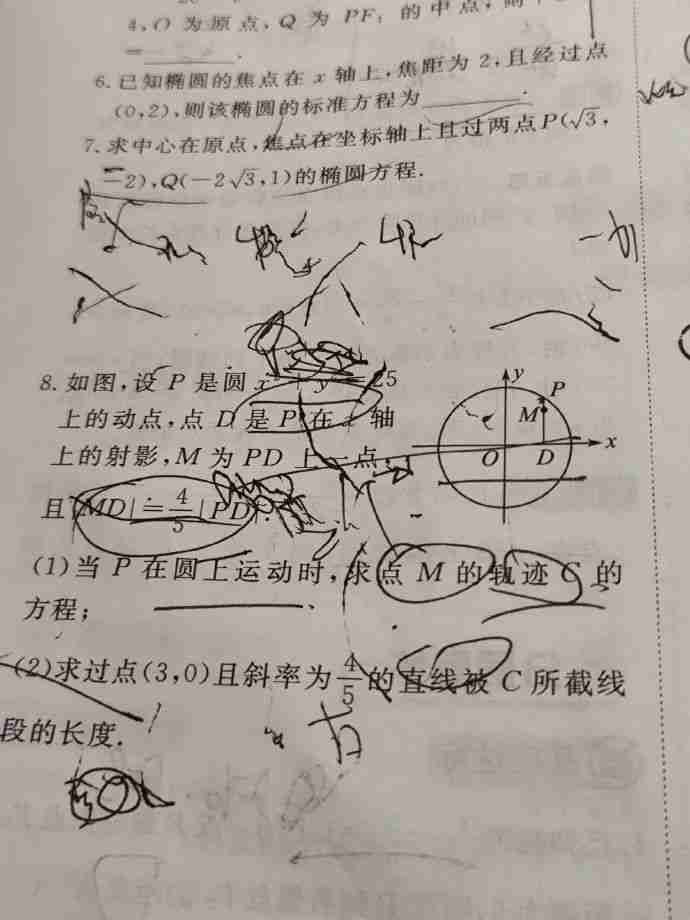 4,O 为原点,Q 为 PF₁ 的中点,则
=______.
6.已知椭圆的焦点在 x 轴上,焦距为 2,且经过点
(0,2),则该椭圆的标准方程为______.
7.求中心在原点,焦点在坐标轴上且过两点P(√3,
-2),Q(-2√3,1)的椭圆方程.
8.如图,设 P 是圆 x² + y² = 25
上的动点,点 D 是 P 在 x 轴
上的射影,M 为 PD 上一点,
且|MD|=4/5|PD|.
y
P
M
O
D
x
(1)当 P 在圆上运动时,求点 M 的轨迹 C 的
方程;
(2)求过点(3,0)且斜率为4/5的直线被 C 所截线
段的长度.